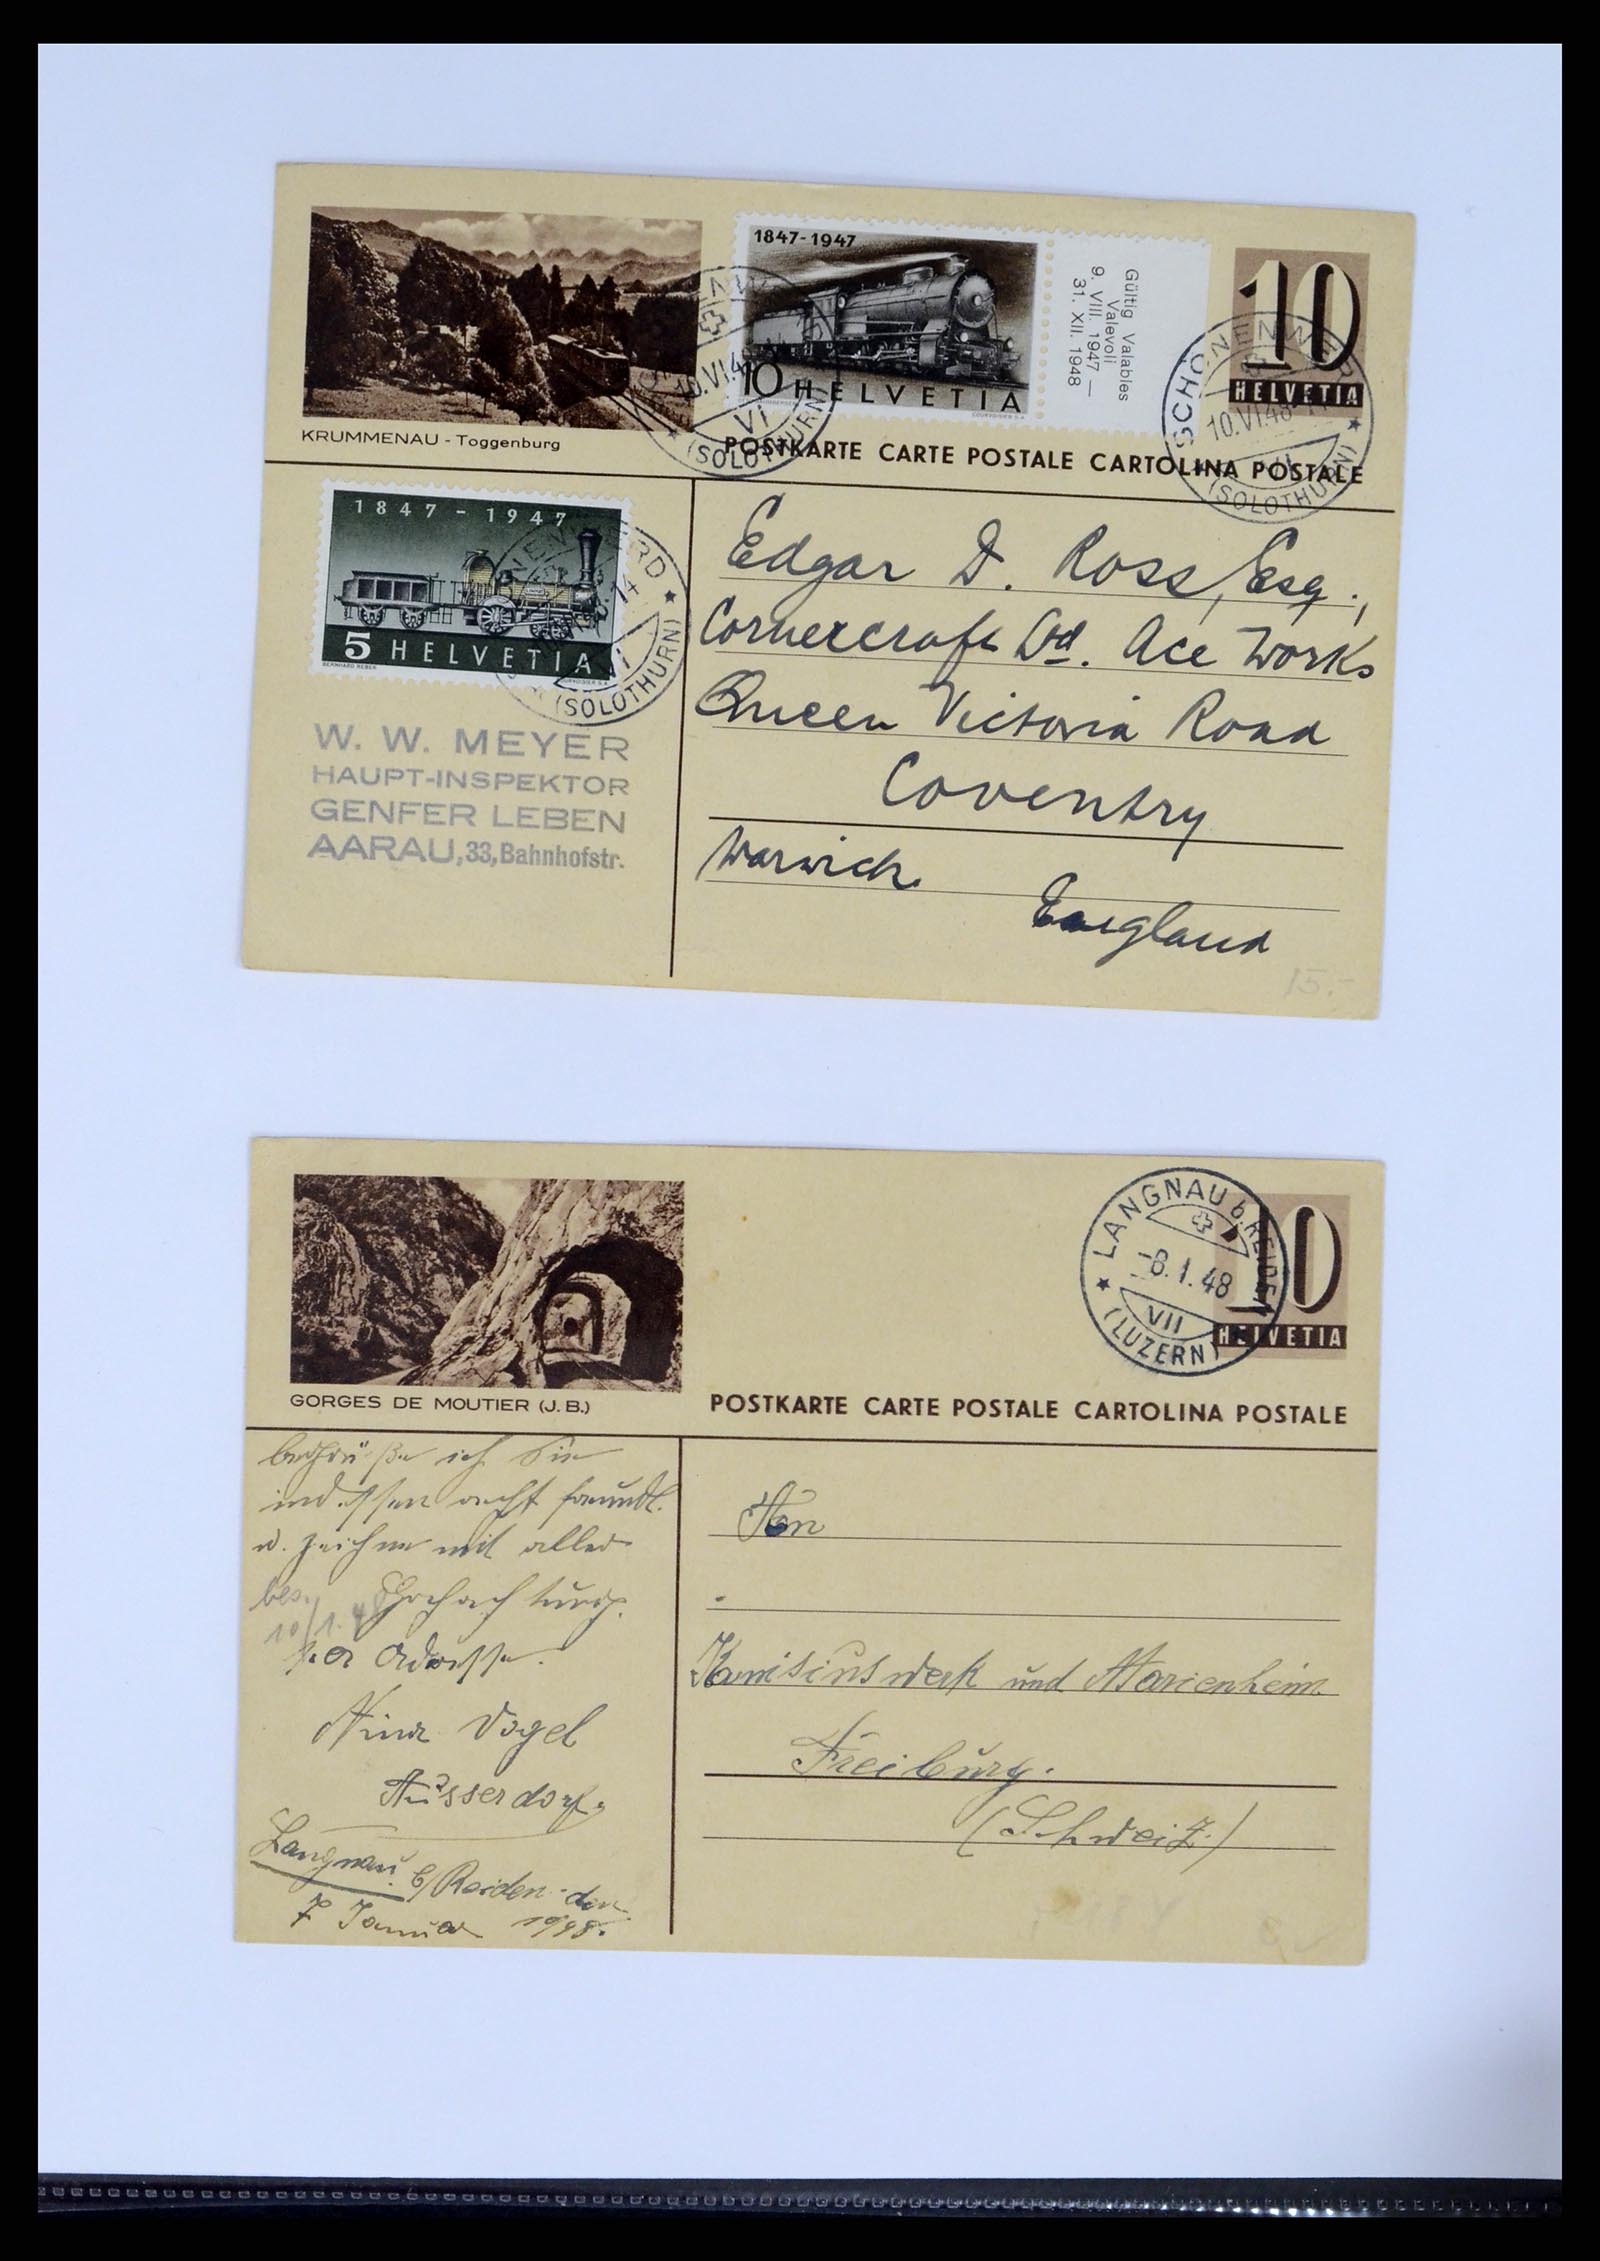 1847-1947
Gültig Valables
Valevoli
9. VIII. 1947 —
31. XII. 1948
10
HELVETIA
10
HELVETIA
KRUMMENAU - Toggenburg
POSTKARTE CARTE POSTALE CARTOLINA POSTALE
SCHÖNENWERD
10.VI.48
VI
(SOLOTHURN)
1847 - 1947
5 HELVETIA
BERNHARD REBER
COURVOISIER S.A.
(SOLOTHURN)
W. W. MEYER
HAUPT-INSPEKTOR
GENFER LEBEN
AARAU, 33, Bahnhofstr.
Edgar D. Ross, Esq.,
Cornercroft Ltd. Ace Works
Queen Victoria Road
Coventry
Warwick
England
15.-
LANGNAU b. REIDEN
-8.1.48
VII
(LUZERN)
10
HELVETIA
GORGES DE MOUTIER (J.B.)
POSTKARTE CARTE POSTALE CARTOLINA POSTALE
begrüße ich Sie
indessen recht freundl.
u. zeichne mit aller
bes. Hochachtung.
10/1.48
Adresse.
Nina Vogel
Ausserdorf
Langnau b/Reiden den
7 Januar 1948.
Kanisiuswerk und Marienheim
Freiburg.
(Schweiz.)